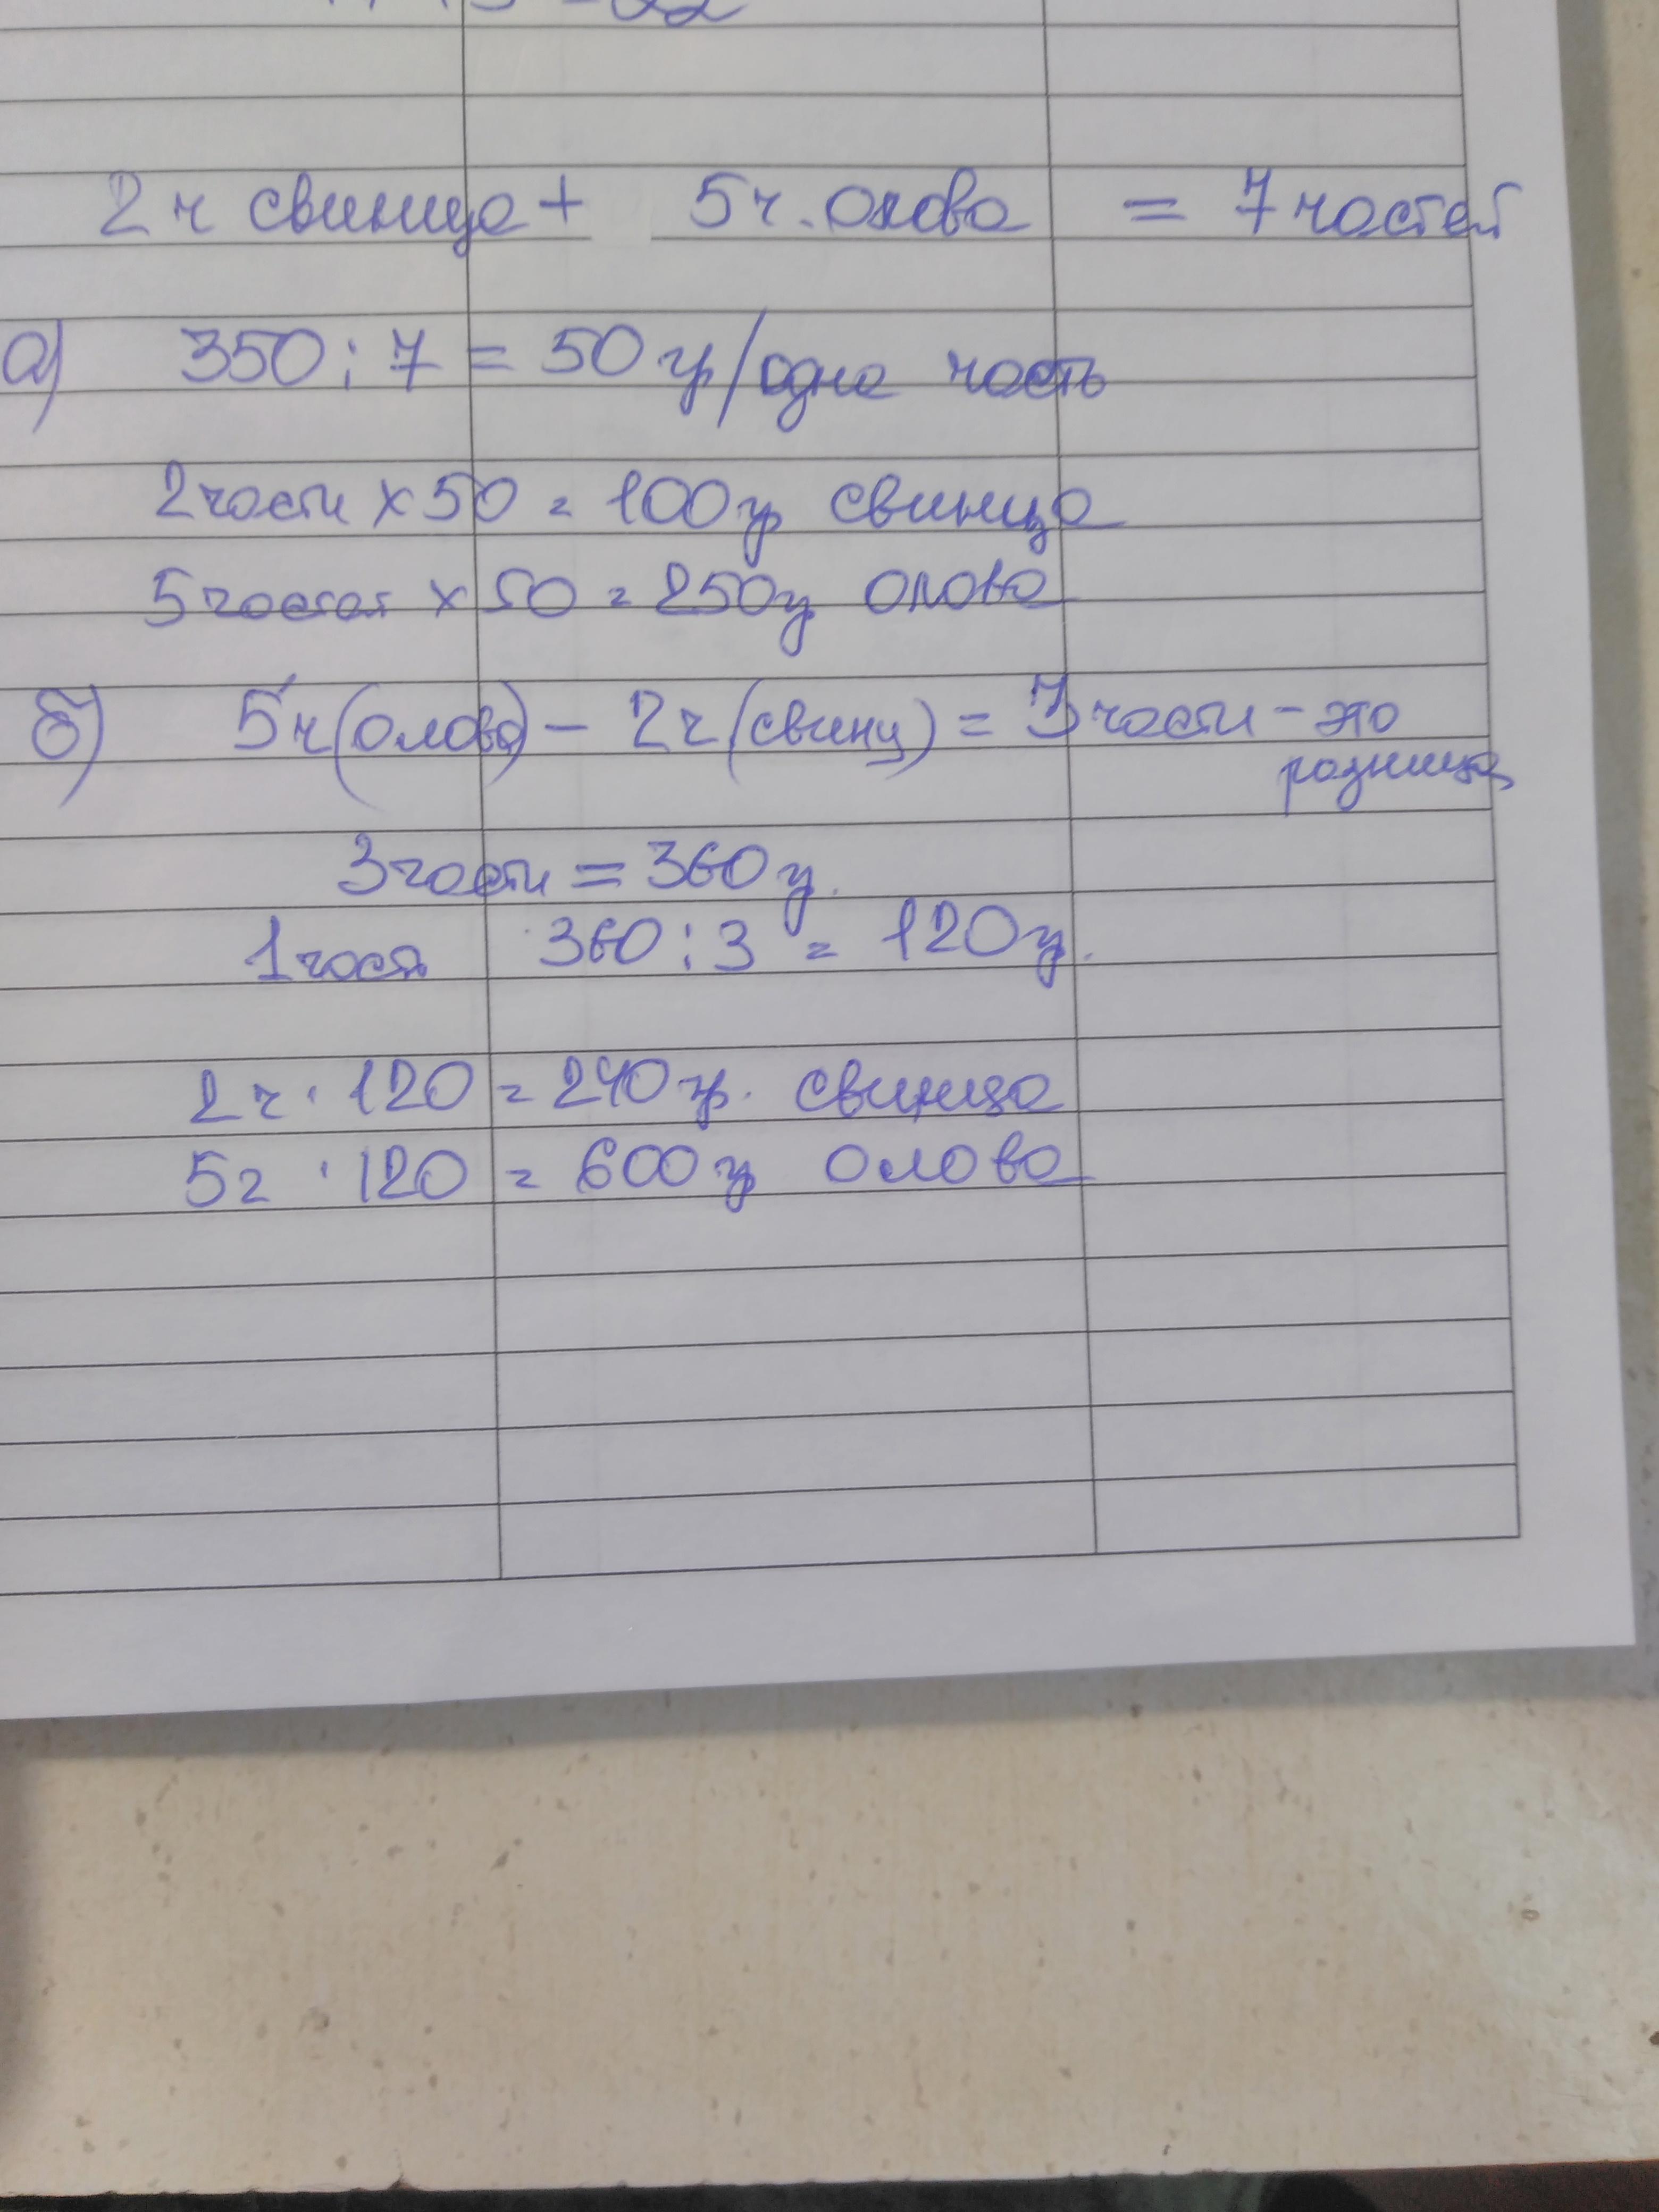 2ч свинца + 5ч. олова = 7 частей
а) 350 : 7 = 50 гр/одна часть
2 части х 50 = 100 гр свинца
5 частей х 50 = 250 гр олова
б) 5ч (олово) – 2ч (свинц) = 3 части – это
разница
3 части = 360 гр.
1 часть 360 : 3 = 120 гр.
2ч · 120 = 240 гр. свинца
5ч · 120 = 600 гр олова